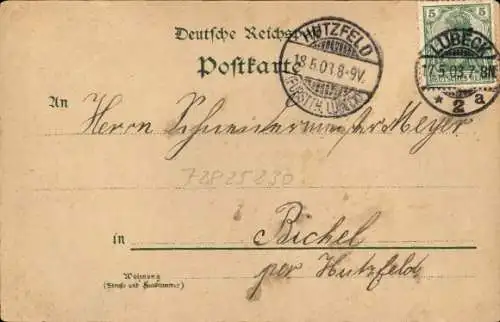 Deutsche Reichspost
Postkarte
HUTZFELD
18.5.03.8-9V.
(FÜRSTTH. LÜBECK)
5
LÜBECK
17.5.03.7-8N.
* 2 a
An
Herrn Schneidermeister Meyer
72825230
in
Bichel
per Hutzfeld
Wohnung
(Straße und Hausnummer)